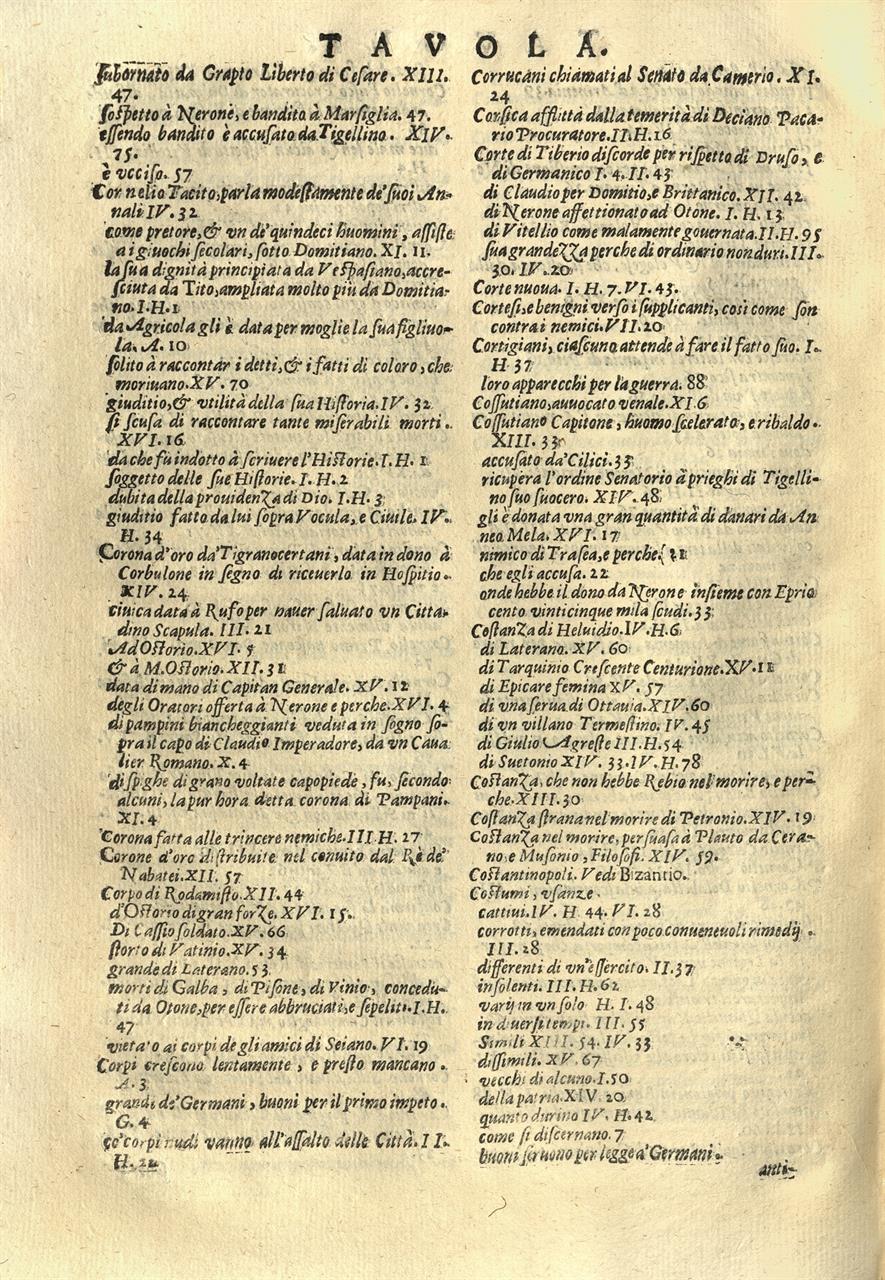 TAVOLA.
subornato da Grapto Liberto di Cesare. XIII.
47.
sospetto à Nerone, e bandito à Marsiglia. 47.
essendo bandito è accusato da Tigellino. XIV.
75.
è vcciso. 57
Cornelio Tacito, parla modestamente de' suoi An-
nali IV. 32
come pretore, & vn de' quindeci huomini, assiste
a i giuochi secolari, sotto Domitiano. XI. 11.
la sua dignità principiata da Vespasiano, accre-
sciuta da Tito, ampliata molto più da Domitia-
no. I. H. 1
da Agricola gli è data per moglie la sua figliuo-
la. A. 10
solito à raccontar i detti, & i fatti di coloro, che
moriuano. XV. 70
giuditio, & vtilità della sua Historia. IV. 32
si scusa di raccontare tante miserabili morti.
XVI. 16
da che fu indotto à scriuere l'Historie. I. H. 1
soggetto delle sue Historie. I. H. 2
dubita della prouidenza di Dio. I. H. 3
giuditio fatto da lui sopra Vocula, e Ciuile. IV.
H. 34
Corona d'oro da' Tigranocertani, data in dono à
Corbulone in segno di riceuerlo in Hospitio.
XIV. 24
ciuica data à Rufo per hauer saluato vn Citta-
dino Scapula. III. 21
Ad Ostorio. XVI. 5
& à M. Ostorio. XII. 31
data di mano di Capitan Generale. XV. 12
degli Oratori offerta à Nerone e perche. XVI. 4
di pampini biancheggianti veduta in sogno so-
pra il capo di Claudio Imperadore, da vn Caua
lier Romano. X. 4
di spighe di grano voltate capopiede, fu, secondo
alcuni, la pur hora detta corona di Pampani.
XI. 4
Corona fatta alle trincere nemiche. III H. 27
Corone d'oro distribuite nel conuito dal Rè de'
Nabatei. XII. 57
Corpo di Rodamisto. XII. 44
d'Ostorio di gran forze. XVI. 15.
Di Cassio soldato. XV. 66
storto di Vatinio. XV. 34
grande di Laterano. 53
morti di Galba, di Pisone, di Vinio, concedu-
ti da Otone, per essere abbruciati, e sepeliti. I. H.
47
vietato ai corpi degli amici di Seiano. VI. 19
Corpi crescono lentamente, e presto mancano.
A. 3
grandi de' Germani, buoni per il primo impeto.
G. 4
co' corpi nudi vanno all'assalto delle Città. II.
H. 22
Corrucani chiamati al Senato da Camerio. XI.
24
Corsica afflitta dalla temerità di Deciano Paca-
rio Procuratore. II. H. 16
Corte di Tiberio discorde per rispetto di Druso, e
di Germanico I. 4. II. 43
di Claudio per Domitio, e Brittanico. XII. 42
di Nerone affettionato ad Otone. I. H. 13
di Vitellio come malamente gouernata. II. H. 95
sua grandezza perche di ordinario non duri. III.
30. IV. 20
Corte nuoua. I. H. 7. VI. 43.
Cortesi, e benigni verso i supplicanti, così come son
contra i nemici. VII. 20
Cortigiani, ciascuno attende à fare il fatto suo. I.
H 37
loro apparecchi per la guerra. 88
Cossutiano, auuocato venale. XI 6
Cossutiano Capitone, huomo scelerato, e ribaldo.
XIII. 33
accusato da' Cilici. 33
ricupera l'ordine Senatorio à prieghi di Tigelli-
no suo suocero. XIV. 48
gli è donata vna gran quantità di danari da An
neo Mela. XVI. 17
nimico di Trasea, e perche. 21
che egli accusa. 22
onde hebbe il dono da Nerone insieme con Eprio
cento vinticinque mila scudi. 33
Costanza di Heluidio. IV. H. 6
di Laterano. XV. 60
di Tarquinio Crescente Centurione. XV. 11
di Epicare femina XV. 57
di vna serua di Ottauia. XIV. 60
di vn villano Termestino. IV. 45
di Giulio Agreste III. H. 54
di Suetonio XIV. 33. IV. H. 78
Costanza, che non hebbe Rebio nel morire, e per-
che. XIII. 30
Costanza strana nel morire di Petronio. XIV. 19
Costanza nel morire, persuasa à Plauto da Cera-
no, e Musonio, Filosofi. XIV. 59.
Costantinopoli. Vedi Bizantio.
Costumi, vsanze.
cattiui. IV. H 44. VI. 28
corrotti, emendati con poco conueneuoli rimedij.
III. 28
differenti di vn'essercito. II. 37
insolenti. III. H. 62
varij in vn solo H. I. 48
in diuersi tempi. III. 55
Simili XIII. 54. IV. 33
dissimili. XV. 67
vecchi di alcuno. I. 50
della patria. XIV 20
quanto durino IV. H. 42
come si discernano. 7
buoni seruono per legge a' Germani.
anti-